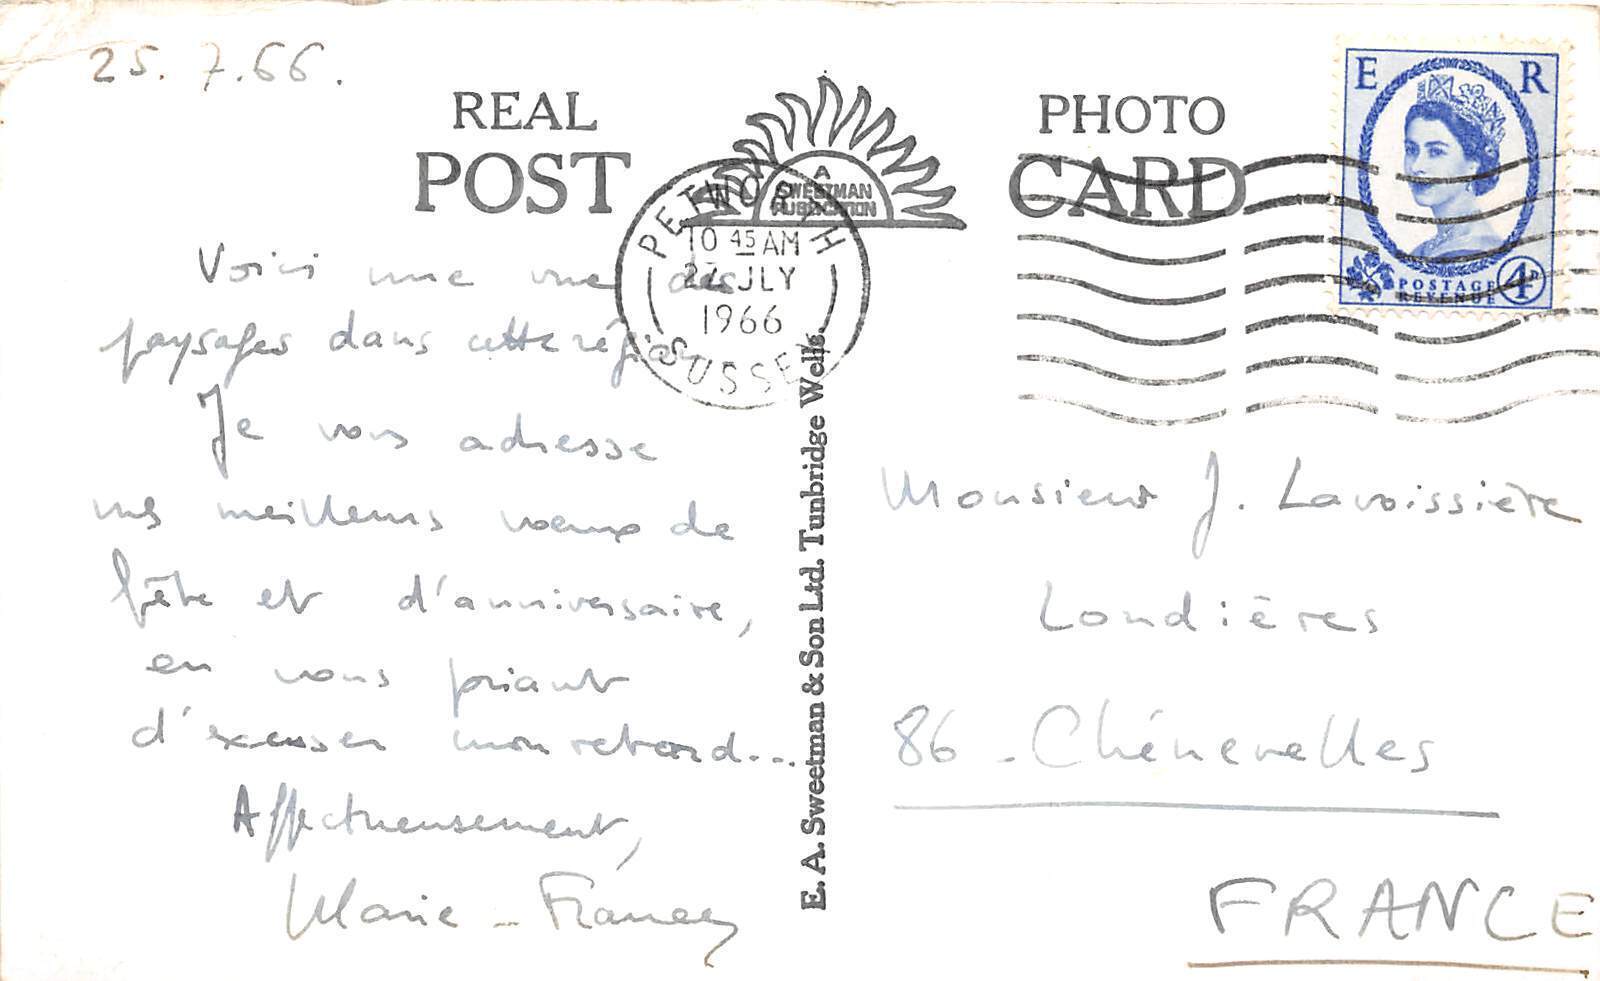 25.7.66.
REAL PHOTO
POST CARD
A
SWEETMAN
PUBLICATION
PETWORTH
10 45 AM
27 JLY
1966
SUSSEX
E R
POSTAGE
REVENUE
4D
Voici une vue des
paysages dans cette région
Je vous adresse
mes meilleurs voeux de
fête et d'anniversaire,
en vous priant
d'excuser mon retard...
Affectueusement,
Marie-France
E. A. Sweetman & Son Ltd. Tunbridge Wells.
Monsieur J. Lavoissière
Londières
86 - Chénevelles
FRANCE